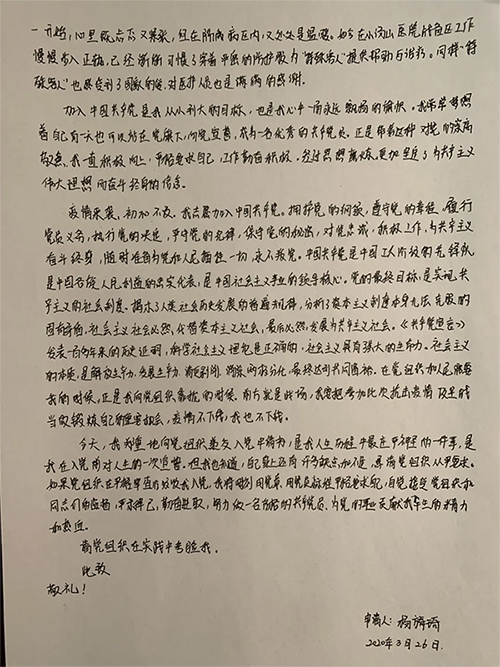 一开始,心里既忐忑又紧张,但在隔离病区内,又处处是温暖。如今在小汤山医院的各区工作
慢慢步入正轨,已经渐渐习惯了穿着严密的防护服为“特殊客人”提供帮助与治疗。同样“特
殊客人”也感受到了国家的爱,对医护人员也是满满的感谢。
加入中国共产党是我从小树立的目标,也是我心中一面永远飘扬的旗帜。我希望梦想
着自己有一天也可以站在党旗下,向党宣誓,成为一名优秀的共产党员。正是带着这种对党的崇高
敬意,我一直积极向上,严格要求自己,工作勤奋积极。经过思想锻炼,更加坚定了为共产主义
伟大理想而奋斗终身的信念。
疫情来袭,初心不改。我志愿加入中国共产党。拥护党的纲领,遵守党的章程,履行
党员义务,执行党的决定,严守党的纪律,保守党的秘密,对党忠诚,积极工作,为共产主义
奋斗终身,随时准备为党和人民牺牲一切,永不叛党。中国共产党是中国工人阶级的先锋队
是中国各族人民利益的忠实代表,是中国社会主义事业的领导核心。党的最终目标,是实现共
产主义的社会制度。揭示了人类社会历史发展的普遍规律,分析了资本主义制度本身无法克服的
固有矛盾,社会主义社会必然代替资本主义社会,最后必然发展为共产主义社会。《共产党宣言》
发表一百多年来的历史证明,科学社会主义理论是正确的,社会主义具有强大的生命力。社会主义
的本质,是解放生产力,发展生产力,消灭剥削,消除两极分化,最终达到共同富裕。在党组织和人民需要
我的时候,正是我向党组织靠拢的时候。前方就是战场,我要把参加此次抗击疫情及里程
当做锻炼自己的重要机会,疫情不下线,我也不下线。
今天,我郑重地向党组织递交入党申请书,是我人生历程中最庄严神圣的一件事,是
我在入党前对人生的一次宣誓。但我也知道,自己身上还有许多缺点和不足,恳请党组织从严要求。
如果党组织在严格审查后发展我入党,我将时刻用党章,用党员标准严格要求自己,自觉接受党组织和
同志们的监督,严于律己,勤奋进取,努力做一名合格的共产党员,为党的事业贡献我毕生的精力
和热血。
请党组织在实践中考验我。
此致
敬礼!
申请人:杨
2020年3月26日.